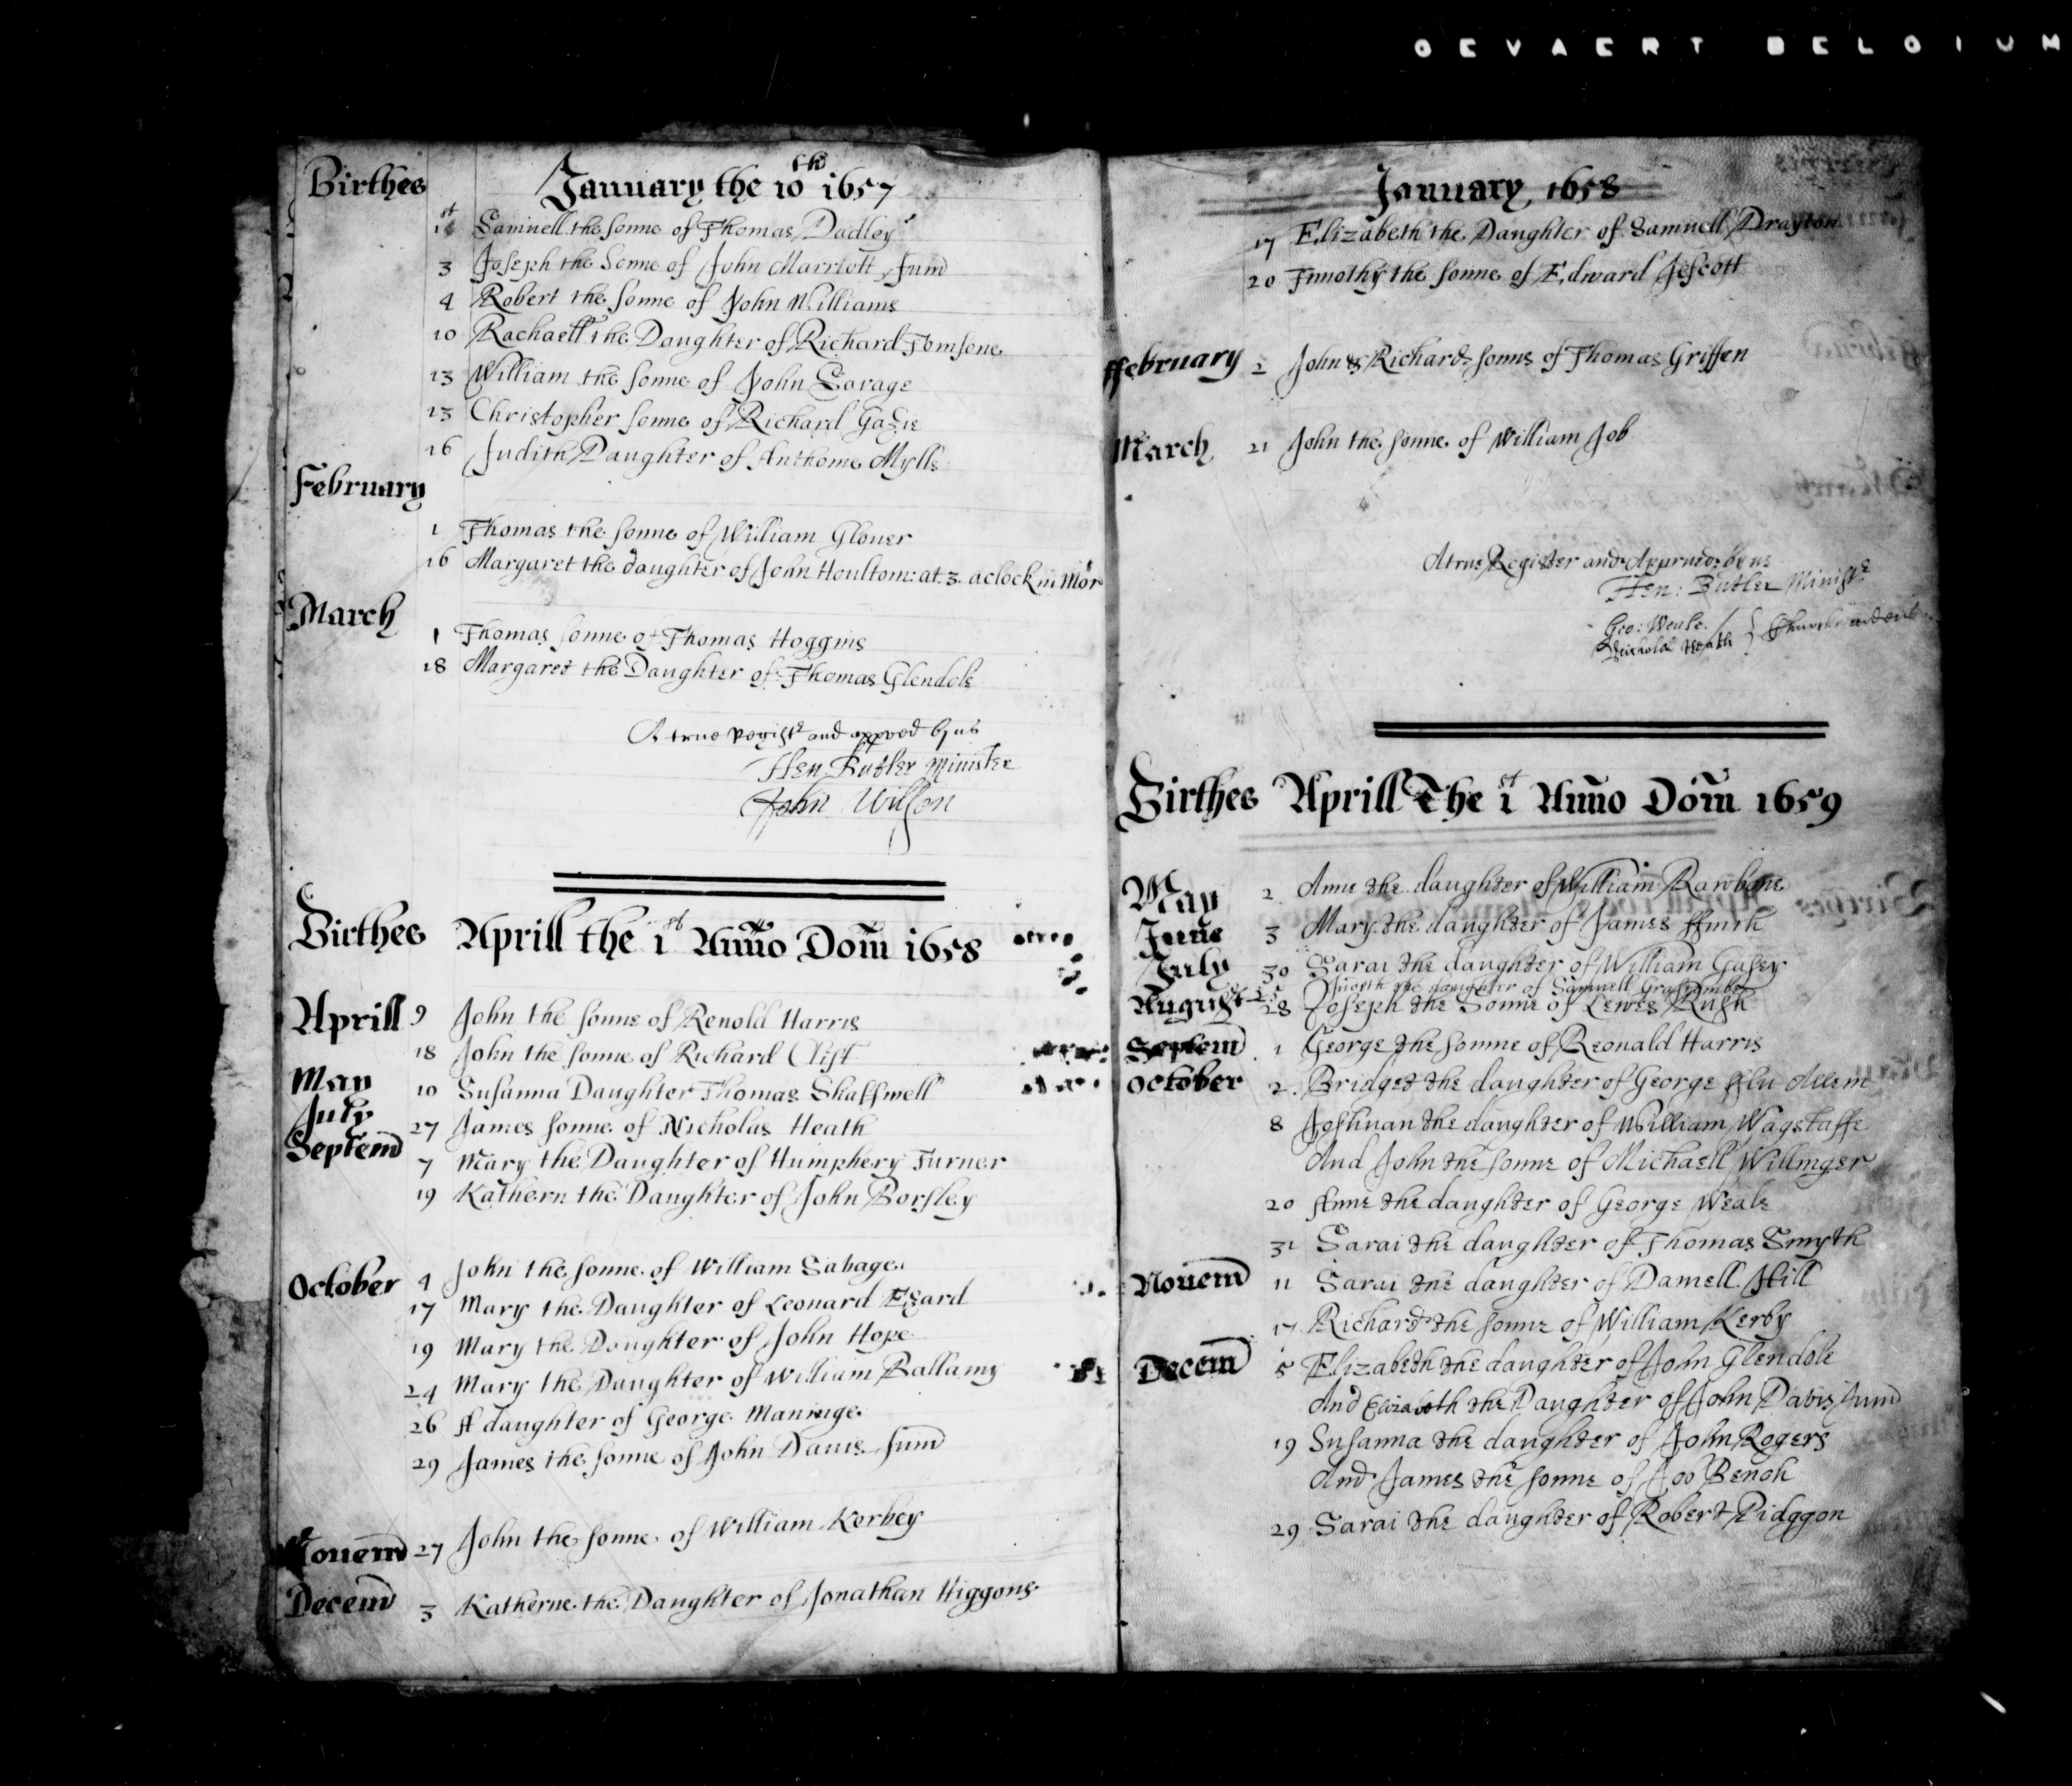 GEVAERT BELGIUM
Birthes January the 10th 1657
1st Samuell the sonne of Thomas Dadley
3 Joseph the Sonne of John Marriott Jun
4 Robert the sonne of John Williams
10 Rachaell the Daughter of Richard Tomsone
13 William the sonne of John Savage
13 Christopher sonne of Richard
16 Judith Daughter of Anthonie Mylls
February
1 Thomas the sonne of William Glover
16 Margaret the daughter of John Houltom: at 3 aclock in Mor
March
1 Thomas sonne of Thomas Hoggins
18 Margaret the Daughter of Thomas Glendole
A true Regist and approved by us
Hen. Butler Minister
John Willson
Birthes Aprill the 1st Anno Dom 1658
Aprill 9 John the sonne of Renold Harris
18 John the sonne of Richard Clift
May 10 Susanna Daughter Thomas Shakswell
July 27 James sonne of Nicholas Heath
Septem 7 Mary the Daughter of Humphery Turner
19 Kathern the Daughter of John Borsley
October 4 John the sonne of William Sabage
17 Mary the Daughter of Leonard Ezard
19 Mary the Daughter of John Hope
24 Mary the Daughter of William Ballamy
26 ff daughter of George Maninge
29 James the sonne of John Davis Jun
Novem 27 John the sonne of William Kerbey
Decem 3 Katherne the Daughter of Jonathan Higgons
January 1658
17 Elizabeth the Daughter of Samuell Drayton
20 Timothy the sonne of Edward Jescott
ffebruary 2 John & Richard sonns of Thomas Griffen
March 21 John the sonne of William Job
A true Register and Approved by us
Hen: Butler Minist
Geo: Weale
Nicholas Heath } Churchwardens
Birthes Aprill The 1st Anno Dom 1659
May 2 Anne the daughter of William Rawbone
June 3 Mary the daughter of James ffinch
July 30 Sarai the daughter of William Gasey
the daughter of Samuell
August 28 Joseph the Sonne of Lewes Rush
Septem 1 George the sonne of Reonald Harris
October 2 Bridget the daughter of George
8 Joshuan the daughter of William Wagstaffe
And John the sonne of Michaell Willinger
20 Anne the daughter of George Weale
31 Sarai the daughter of Thomas Smyth
Novem 11 Sarai the daughter of Daniell Hill
17 Richard the sonne of William Kerby
Decem 5 Elizabeth the daughter of John Glendole
And Elizabeth the Daughter of John Davis Jun
19 Susanna the daughter of John Rogers
And James the sonne of Joo Bench
29 Sarai the daughter of Robert Pidggon